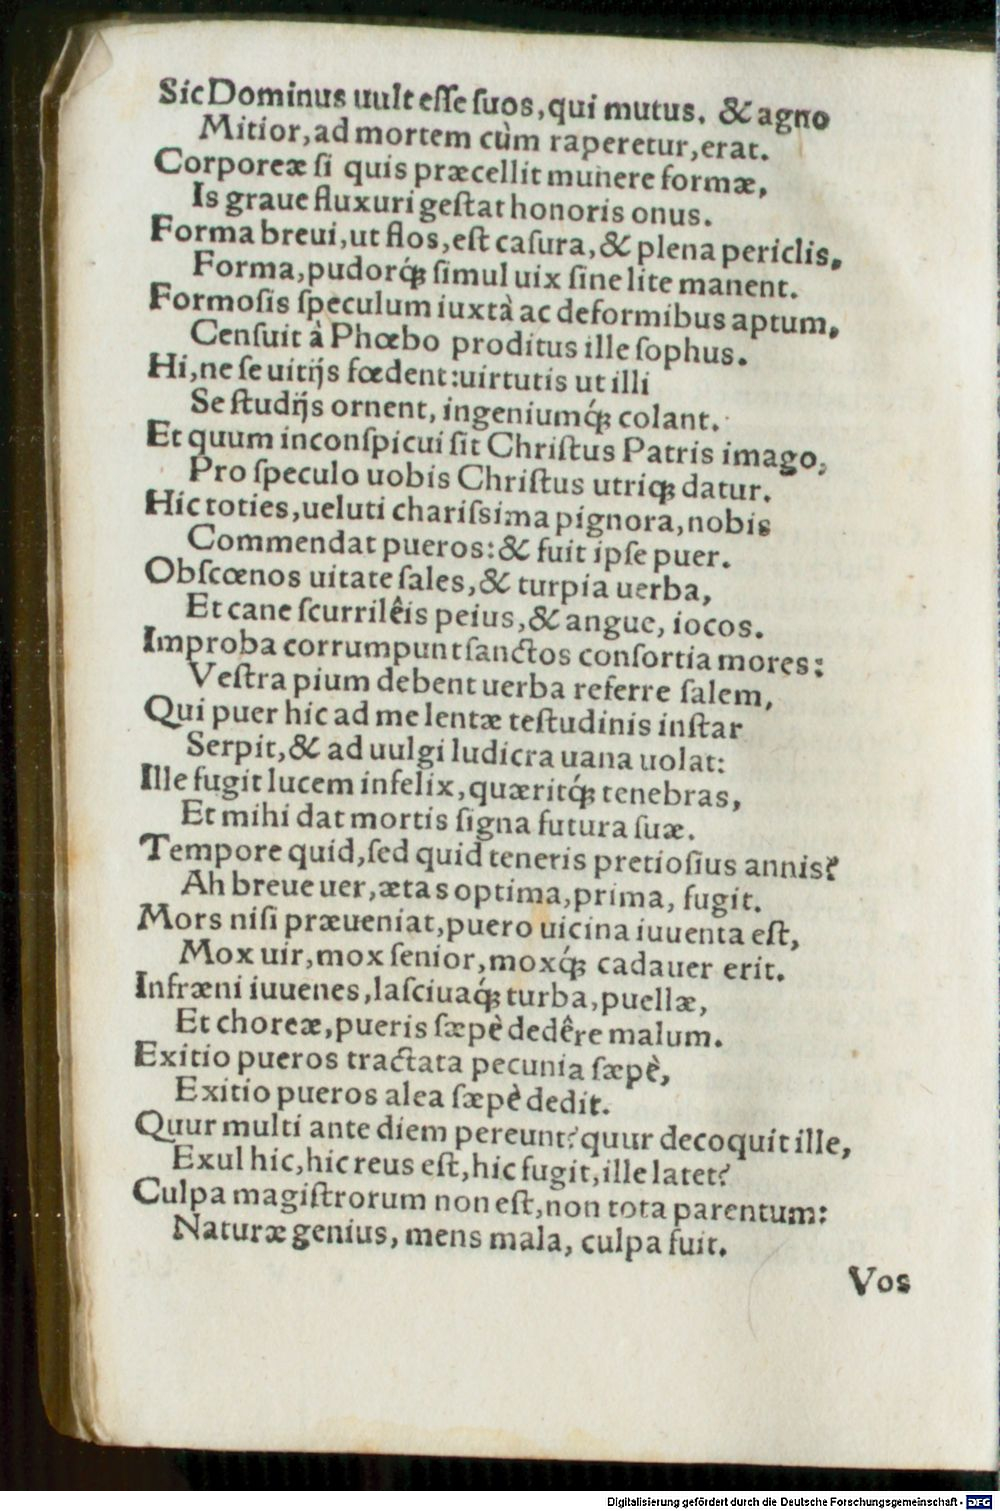 Sic Dominus uult eſſe ſuos, qui mutus. & agno
Mitior, ad mortem cùm raperetur, erat.
Corporeæ ſi quis præcellit munere formæ,
Is graue fluxuri geſtat honoris onus.
Forma breui, ut flos, eſt caſura, & plena periclis,
Forma, pudorq́ꝫ ſimul uix ſine lite manent.
Formoſis ſpeculum iuxtà ac deformibus aptum,
Cenſuit à Phœbo proditus ille ſophus.
Hi, ne ſe uitijs fœdent: uirtutis ut illi
Se ſtudijs ornent, ingeniumq́ꝫ colant.
Et quum inconſpicui ſit Chriſtus Patris imago,
Pro ſpeculo uobis Chriſtus utriqꝫ datur.
Hic toties, ueluti chariſsima pignora, nobis
Commendat pueros: & fuit ipſe puer.
Obſcœnos uitate ſales, & turpia uerba,
Et cane ſcurrilêis peius, & angue, iocos.
Improba corrumpunt ſanctos conſortia mores:
Veſtra pium debent uerba referre ſalem,
Qui puer hic ad me lentæ teſtudinis inſtar
Serpit, & ad uulgi ludicra uana uolat:
Ille fugit lucem infelix, quæritq́ꝫ tenebras,
Et mihi dat mortis ſigna futura ſuæ.
Tempore quid, ſed quid teneris pretioſius annis?
Ah breue uer, ætas optima, prima, fugit.
Mors niſi præueniat, puero uicina iuuenta eſt,
Mox uir, mox ſenior, moxq́ꝫ cadauer erit.
Infræni iuuenes, laſciuaq́ꝫ turba, puellæ,
Et choreæ, pueris ſæpè dedêre malum.
Exitio pueros tractata pecunia ſæpè,
Exitio pueros alea ſæpè dedit.
Quur multi ante diem pereunt? quur decoquit ille,
Exul hic, hic reus eſt, hic fugit, ille latet?
Culpa magiſtrorum non eſt, non tota parentum:
Naturæ genius, mens mala, culpa fuit.
Vos
Digitalisierung gefördert durch die Deutsche Forschungsgemeinschaft - DFG